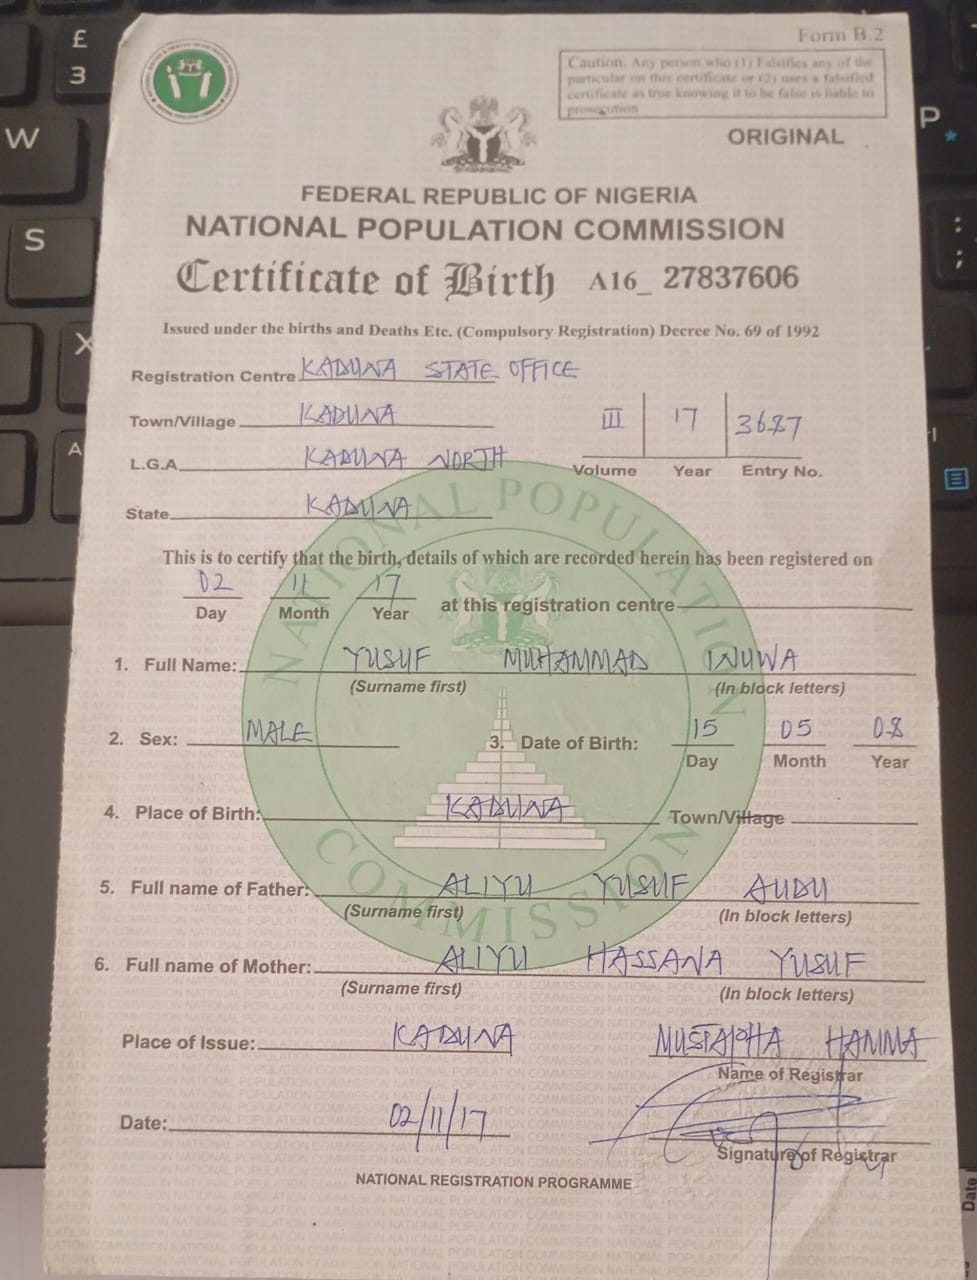 £
3
W
S
X
A
P
:
;
Form B.2
Caution: Any person who (1) Falsifies any of the
particular on this certificate or (2) uses a falsified
certificate as true knowing it to be false is liable to
prosecution
ORIGINAL
FEDERAL REPUBLIC OF NIGERIA
NATIONAL POPULATION COMMISSION
Certificate of Birth A16_ 27837606
Issued under the births and Deaths Etc. (Compulsory Registration) Decree No. 69 of 1992
Registration Centre KADUNA STATE OFFICE
Town/Village KADUNA
L.G.A. KADUNA NORTH
State KADUNA
III 17 3687
Volume Year Entry No.
This is to certify that the birth, details of which are recorded herein has been registered on
02 11 17
Day Month Year at this registration centre
1. Full Name: YUSUF MUHAMMAD INUWA
(Surname first) (In block letters)
2. Sex: MALE 3. Date of Birth: 15 05 08
Day Month Year
4. Place of Birth: KADUNA Town/Village
5. Full name of Father: ALIYU YUSUF AUDU
(Surname first) (In block letters)
6. Full name of Mother: ALIYU HASSANA YUSUF
(Surname first) (In block letters)
Place of Issue: KADUNA MUSTAPHA HAMMA
Name of Registrar
Date: 02/11/17
Signature of Registrar
NATIONAL REGISTRATION PROGRAMME
NATIONAL POPULATION COMMISSION
Date